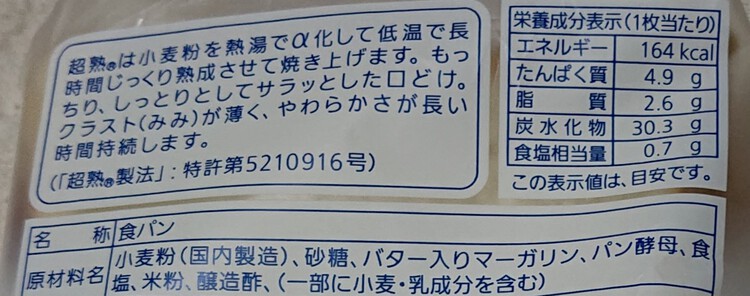 超熟®は小麦粉を熱湯でα化して低温で長
時間じっくり熟成させて焼き上げます。もっ
ちり、しっとりとしてサラッとした口どけ。
クラスト(みみ)が薄く、やわらかさが長い
時間持続します。
(「超熟®製法」:特許第5210916号)
栄養成分表示(1枚当たり)
エネルギー 164 kcal
たんぱく質 4.9 g
脂質 2.6 g
炭水化物 30.3 g
食塩相当量 0.7 g
この表示値は、目安です。
名称 食パン
原材料名 小麦粉(国内製造)、砂糖、バター入りマーガリン、パン酵母、食
塩、米粉、醸造酢、(一部に小麦・乳成分を含む)